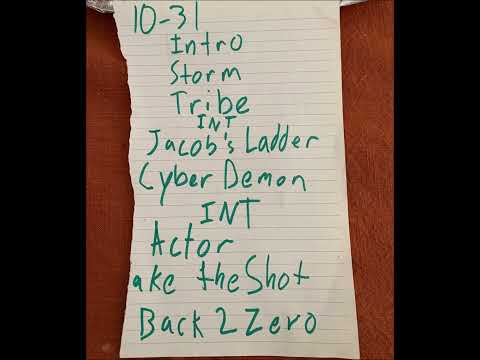 10-31
Intro
Storm
Tribe
INT
Jacob's Ladder
Cyber Demon
INT
Actor
ake the Shot
Back 2 Zero